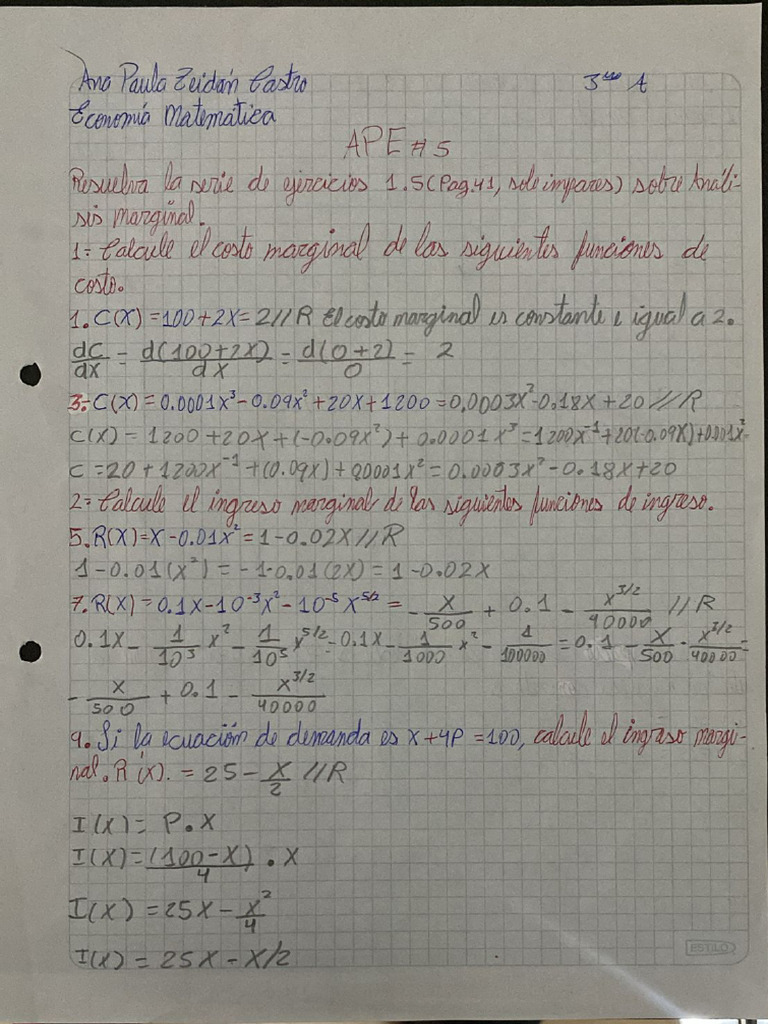 Ana Paula Zeidán Castro 3ero A
Economía Matemática
APE #5
Resuelva la serie de ejercicios 1.5 (Pag.41, solo impares) sobre Análi-
sis marginal.
1= Calcule el costo marginal de las siguientes funciones de
costo.
1. C(X) = 100+2X = 2//R El costo marginal es constante e igual a 2.
dC/dX = d(100+2X)/dX = d(0+2)/0 = 2
3= C(X) = 0.0001X³-0.09X²+20X+1200=0.0003X²-0.18X+20//R
C(X) = 1200+20X+(-0.09X²)+0.0001X³=1200X⁻¹+20(-0.09X)+0.001X²
C=20+1200X⁻¹+(0.09X)+0.0001X²=0.0003X²-0.18X+20
2= Calcule el ingreso marginal de las siguientes funciones de ingreso.
5. R(X)=X-0.01X²=1-0.02X//R
1-0.01(X²)=-1-0.01(2X)=1-0.02X
7. R(X)=0.1X-10⁻³X²-10⁻⁵X^5/2 = -X/500 + 0.1 - X^3/2/40000 //R
0.1X - 1/10³ X² - 1/10⁵ X^5/2 = 0.1X - 1/1000 X² - 1/100000 = 0.1 - X/500 - X^3/2/40000 =
-X/500 + 0.1 - X^3/2/40000
9. Si la ecuación de demanda es X+4P=100, calcule el ingreso margi-
nal. R'(X). = 25 - X/2 //R
I(X) = P.X
I(X) = (100-X)/4 . X
I(X) = 25X - X²/4
I(X) = 25X - X/2
ESTILO